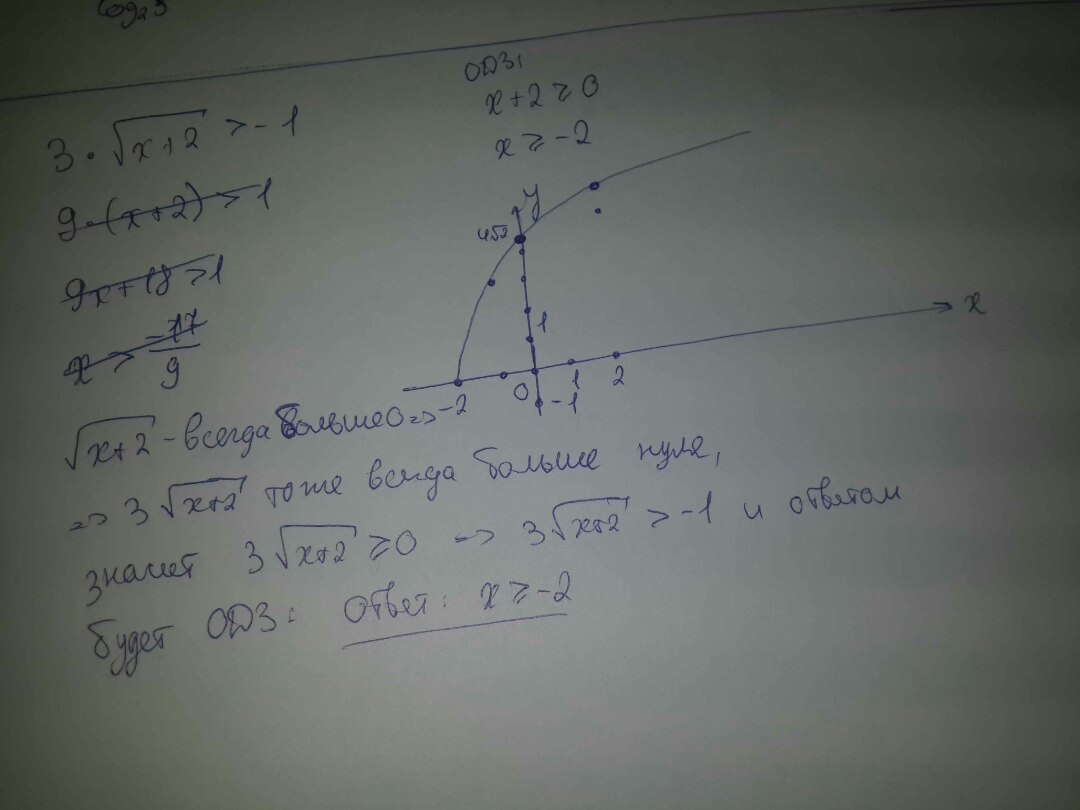 log₂3
3·√(x+2) > -1
9·(x+2) > 1
9x+18 > 1
x > -17/9
ОДЗ:
x+2 ≥ 0
x ≥ -2
y
1
x
-2
0
1
2
-1
√(x+2) - всегда больше 0 =>
=> 3√(x+2) тоже всегда больше нуля,
значит 3√(x+2) ≥ 0 => 3√(x+2) > -1 и ответом
будет ОДЗ: Ответ: x ≥ -2